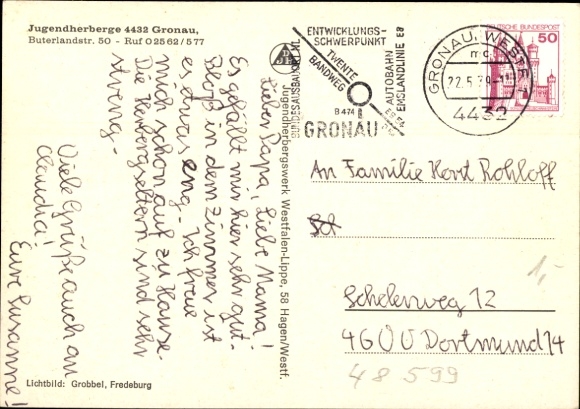 Jugendherberge 4432 Gronau,
Buterlandstr. 50 - Ruf 02562/577
Lieber Papa, Liebe Mama!
Es gefällt mir hier sehr gut.
Bloß in dem Zimmer ist
es etwas eng. Ich freue
mich schon auf zu Hause.
Die Herbergseltern sind sehr
streng -
Viele Grüße auch an
Claudia!
Eure Susanne!
Lichtbild: Grobbel, Fredeburg
Jugendherbergswerk Westfalen-Lippe, 58 Hagen/Westf.
ENTWICKLUNGS-
SCHWERPUNKT
TWENTE
BANDWEG
BUNDESAUSBAUORT NL
AUTOBAHN
EMSLANDLINIE E8
B 474
GRONAU
GRONAU, WESTF 1
mc
22.5.79
4432
DEUTSCHE BUNDESPOST
50
An Familie Horst Rohloff
Sch
Schelenweg 12
4600 Dortmund 14
1,-
48 599